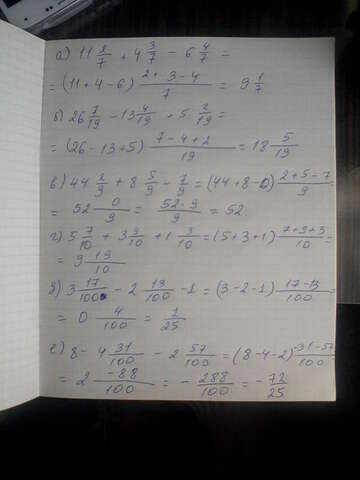 а) 11 2/7 + 4 3/7 − 6 4/7 =
= (11+4−6) (2+3−4)/7 = 9 1/7
б) 26 7/19 − 13 4/19 + 5 2/19 =
= (26−13+5) (7−4+2)/19 = 18 5/19
в) 44 2/9 + 8 5/9 − 7/9 = (44+8−0) (2+5−7)/9 =
= 52 0/9 = 52·9/9 = 52.
г) 5 7/10 + 3 9/10 + 1 3/10 = (5+3+1) (7+9+3)/10 =
= 9 19/10
д) 3 17/100 − 2 13/100 − 1 = (3−2−1) (17−13)/100 =
= 0 4/100 = 1/25
е) 8 − 4 31/100 − 2 57/100 = (8−4−2) (−31−57)/100
= 2 −88/100 = − 288/100 = − 72/25